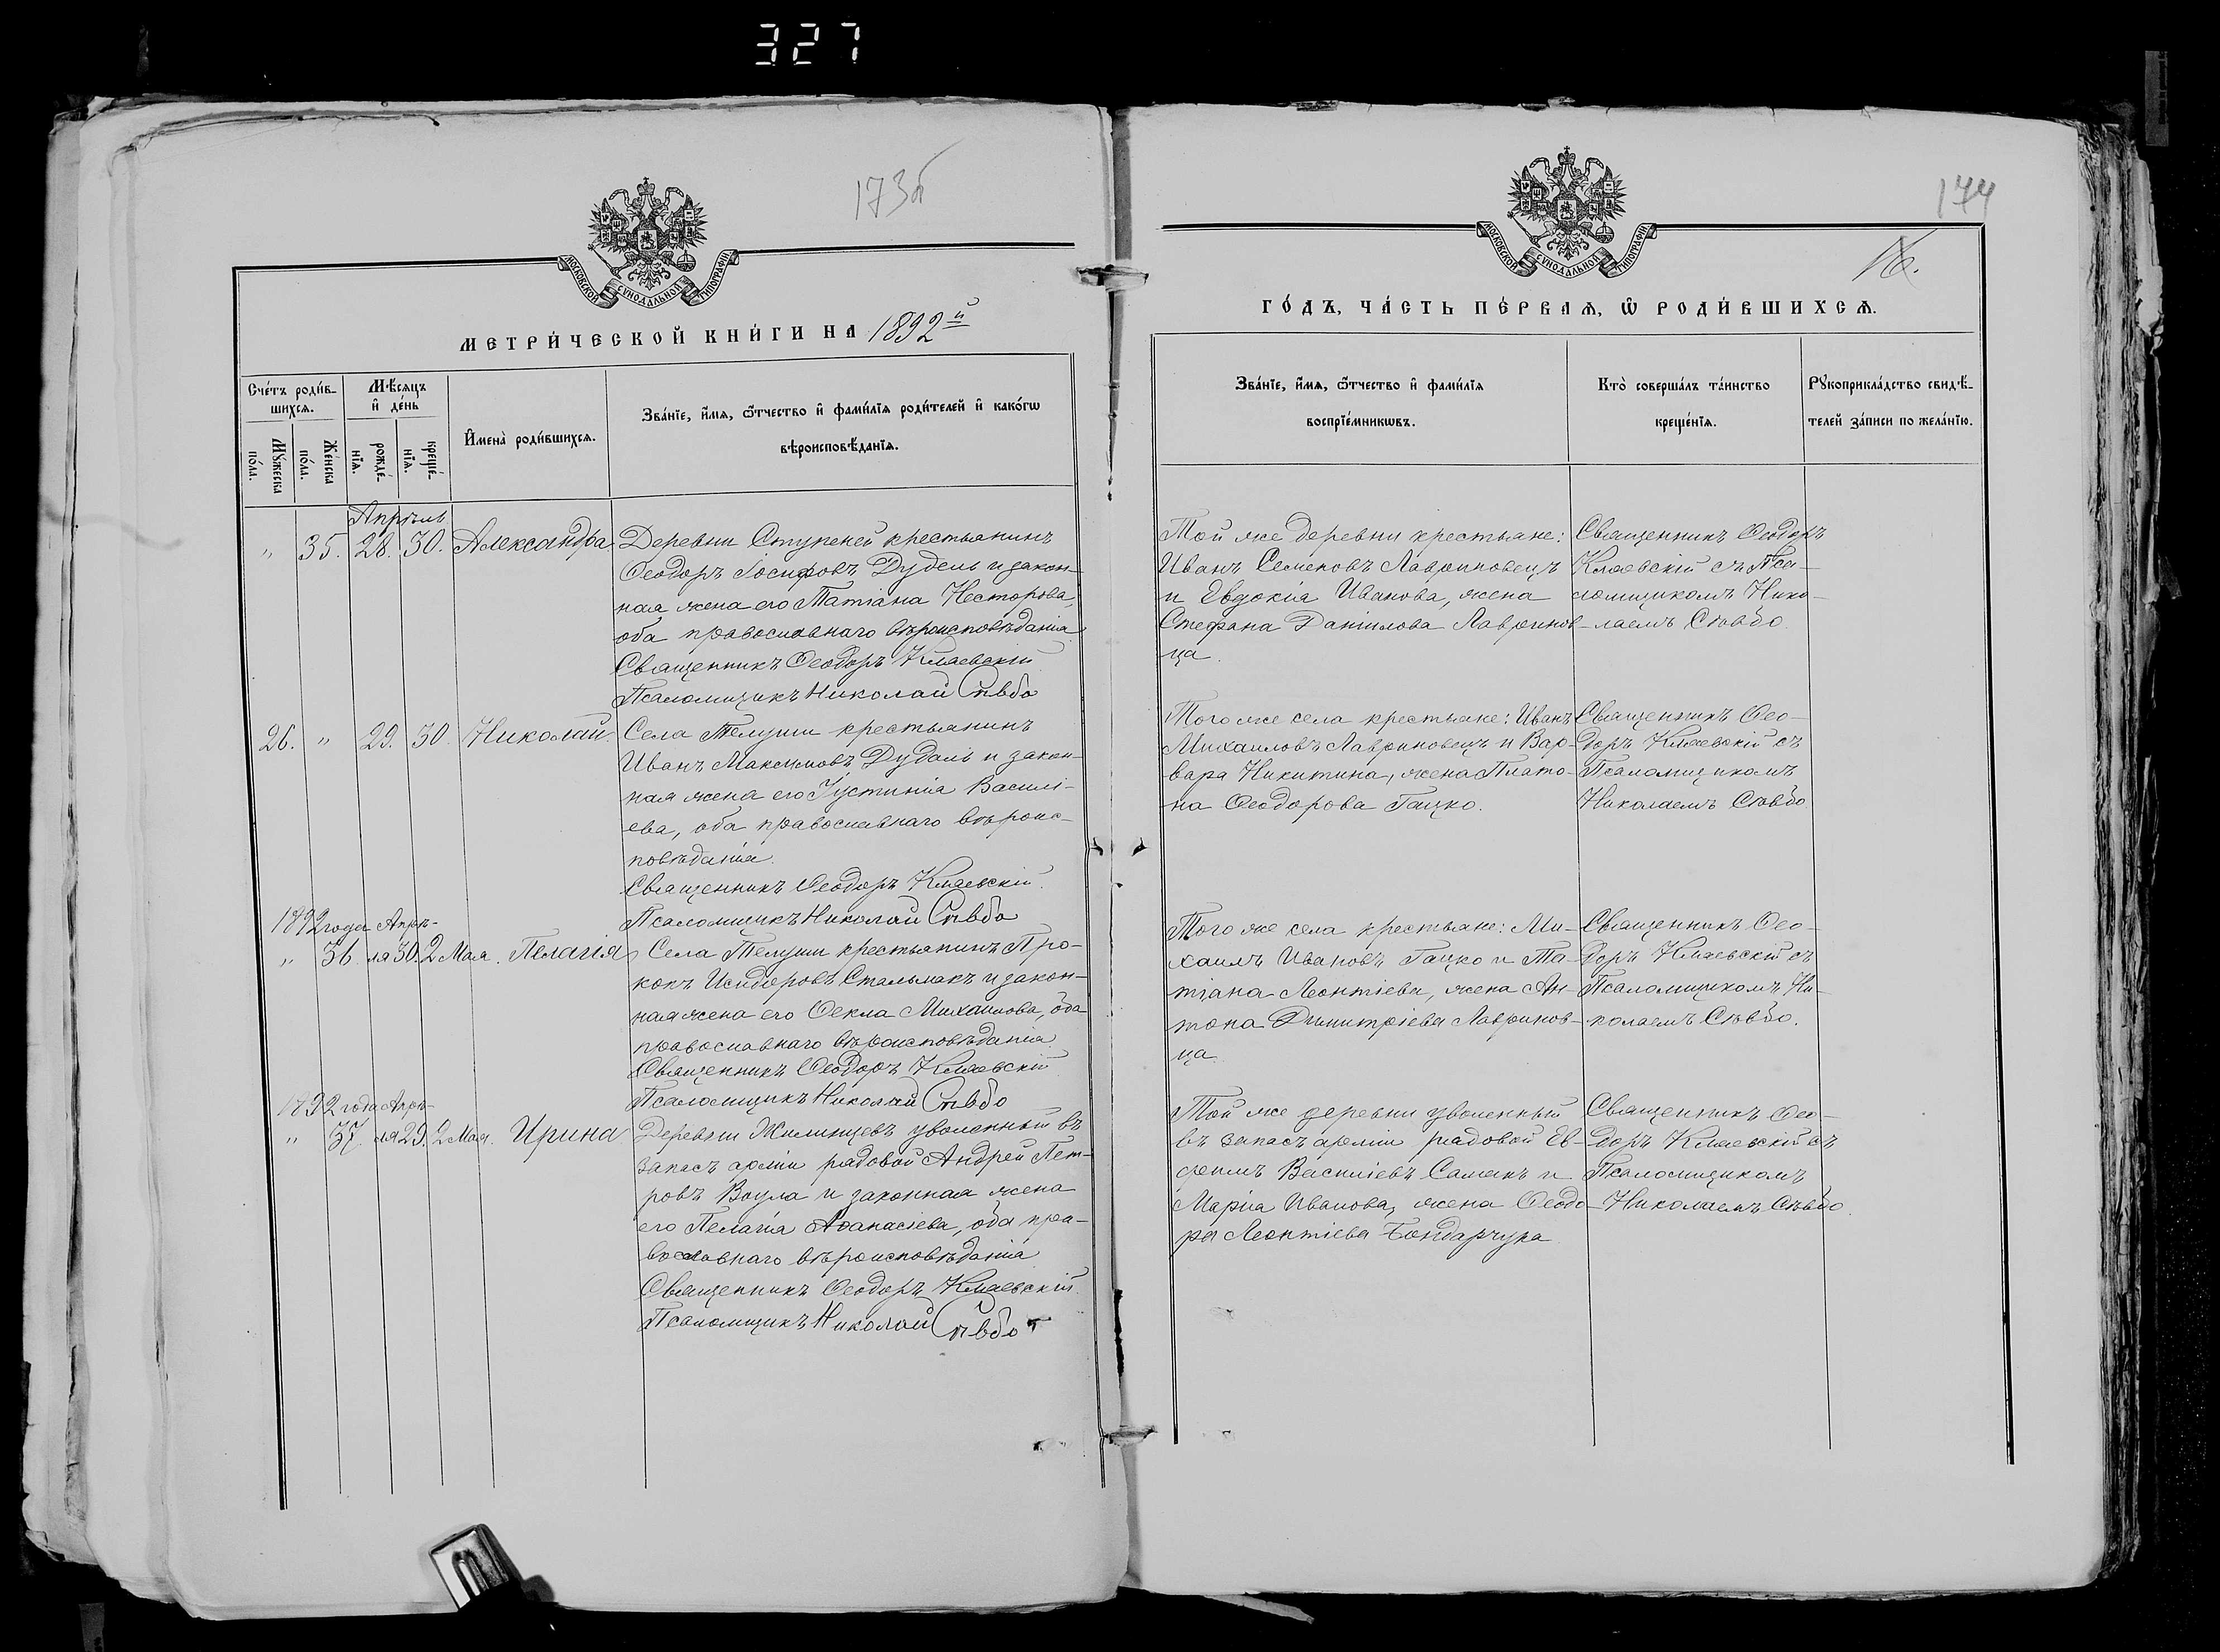 327
173б
МОСКОВСКОЙ СѴНОДАЛЬНОЙ ТИПОГРАФІИ
МЕТРИ́ЧЕСКОЙ КНИ́ГИ НА 1892й
Сче́тъ роди́в-
шихсѧ.
Мѣ́сѧцъ
и҆ де́нь
Мꙋ́жеска
по́ла.
Же́нска
по́ла.
рожде́-
нїѧ.
креще́-
нїѧ.
И҆мена̀ роди́вшихсѧ.
Зва́нїе, и҆́мѧ, ѻ҆́тчество и҆ фами́лїѧ роди́телей и҆ како́гѡ
вѣроисповѣ́данїѧ.
Апрѣль
" 35. 28. 30. Александра
Деревни Ступеней крестьянинъ
Ѳеодоръ Іосифовъ Дудель и закон-
ная жена его Татіана Несторова,
оба православнаго вѣроисповѣданія
Священникъ Ѳеодоръ Клаевскій
Псаломщикъ Николай Сѣвбо
26. " 29. 30. Николай.
Села Телуши крестьянинъ
Иванъ Максимовъ Дудаль и закон-
ная жена его Іустинія Василі-
ева, оба православнаго вѣроис-
повѣданія.
Священникъ Ѳеодоръ Клаевскій.
Псаломщикъ Николай Сѣвбо
1892 года Апрѣ-
" 36 ля 30. 2 Мая. Пелагія
Села Телуши крестьянинъ Про-
копъ Исидоровъ Стальмакъ и закон-
ная жена его Ѳекла Михаилова, оба
православнаго вѣроисповѣданія.
Священникъ Ѳеодоръ Клаевскій
Псаломщикъ Николай Сѣвбо
1892 года Апрѣ-
" 37. ля 29. 2 Мая. Ирина
Деревни Жилинцевъ уволенный въ
запасъ арміи рядовой Андрей Пет-
ровъ Воула и законная жена
его Пелагія Аѳанасіева, оба пра-
вославнаго вѣроисповѣданія
Священникъ Ѳеодоръ Клаевскій.
Псаломщикъ Николай Сѣвбо
174
МОСКОВСКОЙ СѴНОДАЛЬНОЙ ТИПОГРАФІИ
16.
ГО́ДЪ, ЧА́СТЬ ПЕ́РВАѦ, Ѡ҆ РОДИ́ВШИХСѦ.
Зва́нїе, и҆́мѧ, ѻ҆́тчество и҆ фами́лїѧ
воспрїе́мникѡвъ.
Кто̀ соверша́лъ та́инство
креще́нїѧ.
Рꙋкоприкла́дство свидѣ́-
телей за́писи по жела́нїю.
Той же деревни крестьяне:
Иванъ Семеновъ Лавриновецъ
и Евдокія Иванова, жена
Стефана Даніилова Лавринов-
ца.
Священникъ Ѳеодоръ
Клаевскій съ Пса-
ломщикомъ Нико-
лаемъ Сѣвбо.
Того же села крестьяне: Иванъ
Михаиловъ Лавриновецъ и Вар-
вара Никитина, жена Плато-
на Ѳеодорова Гацко.
Священникъ Ѳео-
доръ Клаевскій съ
Псаломщикомъ
Николаемъ Сѣвбо.
Того же села крестьяне: Ми-
хаилъ Ивановъ Гацко и Та-
тіана Леонтіева, жена Ан-
тона Димитріева Лавринов-
ца.
Священникъ Ѳео-
доръ Клаевскій съ
Псаломщикомъ Ни-
колаемъ Сѣвбо.
Той же деревни уволенный
въ запасъ арміи рядовой Ев-
фимъ Василіевъ Самакъ и
Марія Иванова, жена Ѳеодо-
ра Леонтіева Бондарчука
Священникъ Ѳео-
доръ Клаевскій съ
Псаломщикомъ
Николаемъ Сѣвбо.